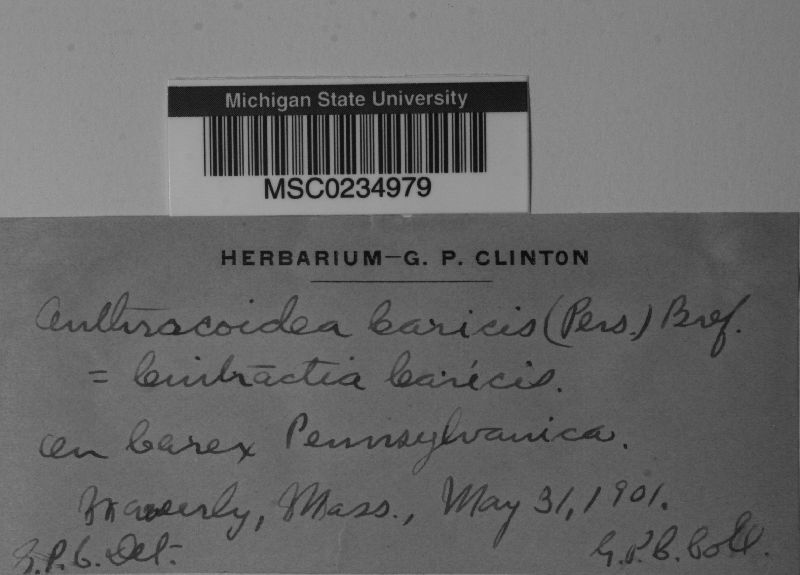 Michigan State University
MSC0234979
HERBARIUM—G. P. CLINTON
Anthracoidea Caricis (Pers.) Bref.
= Cintractia Caricis.
On Carex Pennsylvanica.
Waverly, Mass., May 31, 1901.
G.P.C. Det. G.P.C. Coll.